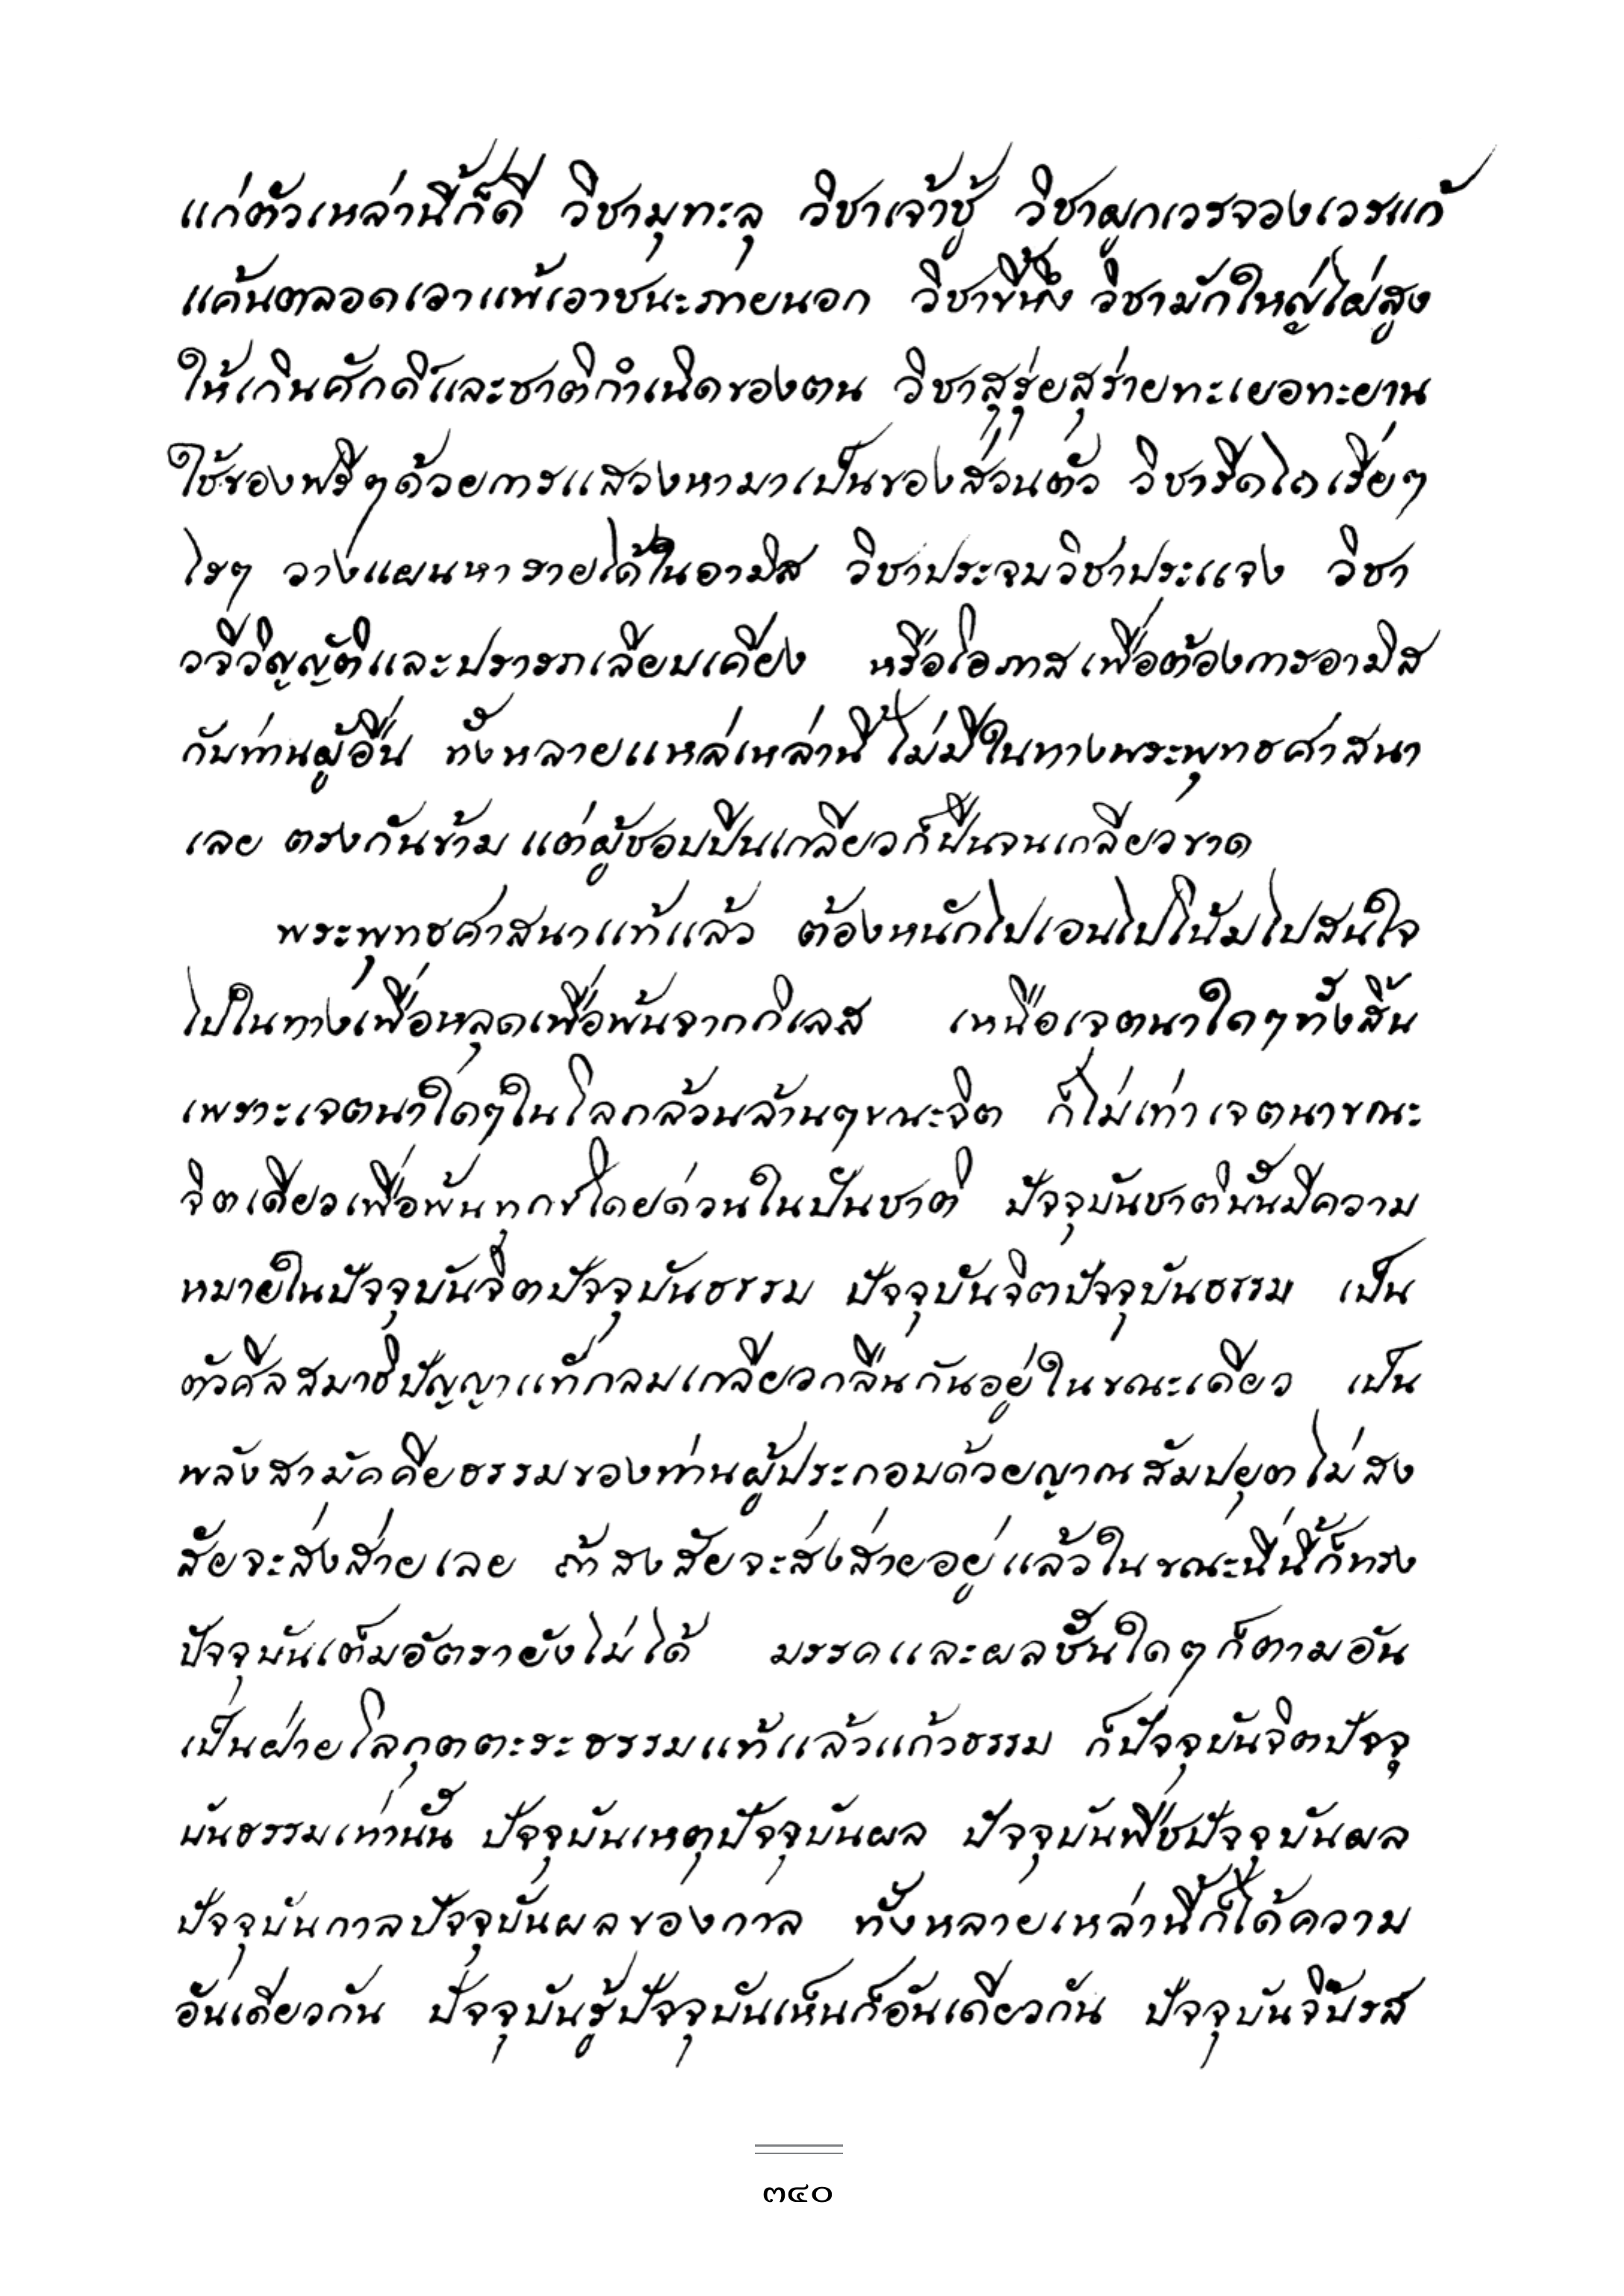 แก่ตัวเหล่านี้ก็ดี วิชามุทะลุ วิชาเจ้าชู้ วิชาผูกเวรจองเวรแก้
แค้นตลอดเอาแพ้เอาชนะภายนอก วิชาขี้หึง วิชามักใหญ่ไฝ่สูง
ให้เกินศักดิ์และชาติกำเนิดของตน วิชาสุรุ่ยสุร่ายทะเยอทะยาน
ใช้ของฟรีๆด้วยการแสวงหามาเป็นของส่วนตัว วิชารีดไถเรี่ยๆ
ไรๆ วางแผนหารายได้ในอามิส วิชาประจบวิชาประแจง วิชา
วจีวิญญัติและปรารภเลียบเคียง หรือโอภาสเพื่อต้องการอามิส
กับท่านผู้อื่น ทั้งหลายแหล่เหล่านี้ไม่มีในทางพระพุทธศาสนา
เลย ตรงกันข้าม แต่ผู้ชอบปีนเกลียวก็ปีนจนเกลียวขาด
พระพุทธศาสนาแท้แล้ว ต้องหนักไปเอนไปโน้มไปสนใจ
ไปในทางเพื่อหลุดเพื่อพ้นจากกิเลส เหนือเจตนาใดๆทั้งสิ้น
เพราะเจตนาใดๆในโลกล้วนล้านๆขณะจิต ก็ไม่เท่าเจตนาขณะ
จิตเดียวเพื่อพ้นทุกข์โดยด่วนในปันชาติ ปัจจุบันชาตินั้นมีความ
หมายในปัจจุบันจิตปัจจุบันธรรม ปัจจุบันจิตปัจจุบันธรรม เป็น
ตัวศีลสมาธิปัญญาแท้กลมเกลียวกลืนกันอยู่ในขณะเดียว เป็น
พลังสามัคคียธรรมของท่านผู้ประกอบด้วยญาณสัมปยุตไม่สง
สัยจะส่งส่ายเลย ถ้าสงสัยจะส่งส่ายอยู่แล้วในขณะนี่นี้ก็ทรง
ปัจจุบันเต็มอัตรายังไม่ได้ มรรคและผลชั้นใดๆก็ตามอัน
เป็นฝ่ายโลกุตตะระธรรมแท้แล้วแก้วธรรม ก็ปัจจุบันจิตปัจจุ
บันธรรมเท่านั้น ปัจจุบันเหตุปัจจุบันผล ปัจจุบันพืชปัจจุบันผล
ปัจจุบันกาลปัจจุบันผลของกาล ทั้งหลายเหล่านี้ก็ได้ความ
อันเดียวกัน ปัจจุบันรู้ปัจจุบันเห็นก็อันเดียวกัน ปัจจุบันจิบรส
๓๔๐